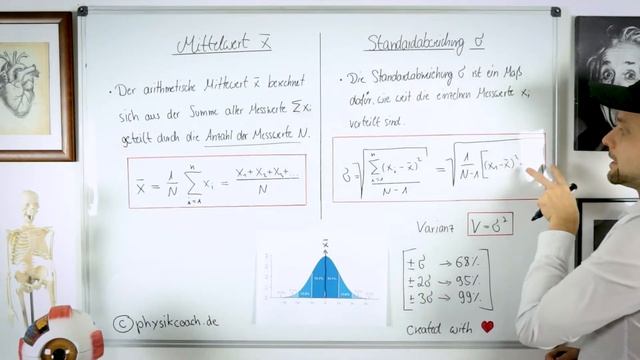 Mittelwert x̄
• Der arithmetische Mittelwert x̄ berechnet
sich aus der Summe aller Messwerte ∑xᵢ
geteilt durch die Anzahl der Messwerte N.
x̄ = 1/N ∑ᵢ₌₁ⁿ xᵢ = (x₁+x₂+x₃+...)/N
Standardabweichung σ
• Die Standardabweichung σ ist ein Maß
dafür, wie weit die einzelnen Messwerte xᵢ
verteilt sind.
σ = √(∑ᵢ₌₁ⁿ(xᵢ-x̄)²/(N-1)) = √(1/(N-1) [(x₁-x̄)²
Varianz V=σ²
±σ → 68%
±2σ → 95%
±3σ → 99%
x̄
© physikcoach.de
created with ♥